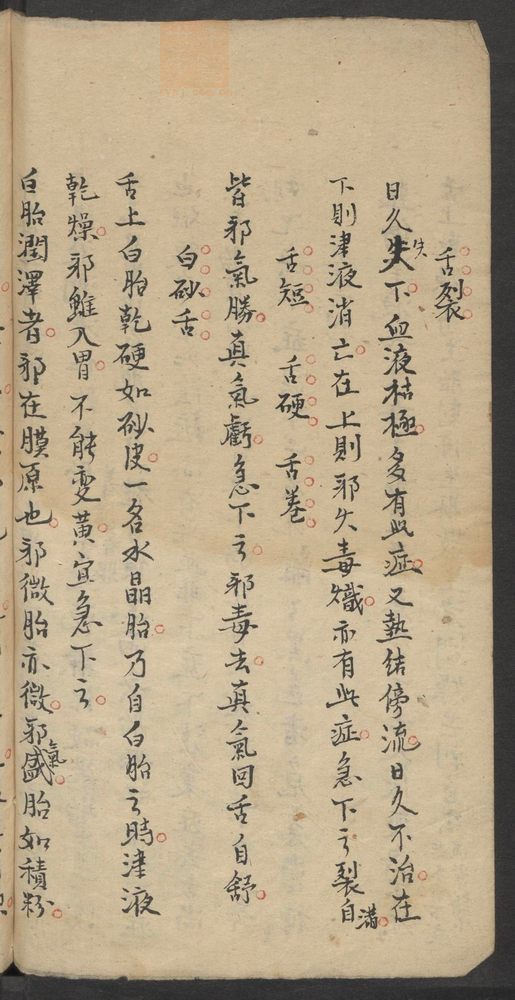 舌裂
日久失下血液枯極多有此症又熱結傍流日久不治在
下則津液消亡在上則邪火毒熾亦有此症急下之裂自滿
舌短 舌硬 舌卷
皆邪氣勝真氣虧急下之邪毒去真氣回舌自舒
白砂舌
舌上白胎乾硬如砂皮一名水晶胎乃自白胎之時津液
乾燥邪雖入胃不能变黃宜急下之
白胎潤澤者邪在膜原也邪微胎亦微邪氣盛胎如積粉